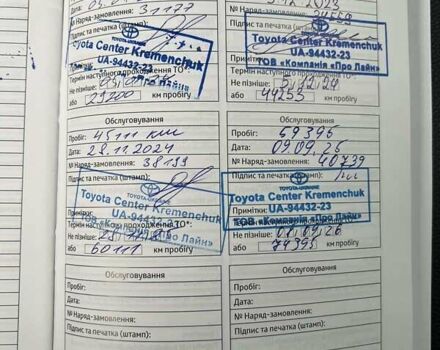 31177
№ Наряд-замовлення:
Підпис та печатка (штамп):
Toyota Center Kremenchuk
UA-94432-23
Термін наступного проходження ТО*:
Не пізніше:
або 29200 км пробігу
.2023
№ Наряд-замовлення:
Підпис та печатка
TOYOTA-UKRAINE
Toyota Center Kremenchuk
UA-94432-23
ТОВ «Компанія «Про Лайн»
Примітки:
Термін
Не пізніше:
або 44253 км пробігу
Обслуговування
Пробіг: 45111 км
Дата: 28.11.2024
№ Наряд-замовлення: 38199
Підпис та печатка (штамп):
TOYOTA-UKRAINE
Toyota Center Kremenchuk
Примітки:
UA-94432-23
Термін наступного проходження ТО*:
ТОВ «Компанія «Про Лайн»
Не пізніше:
або 60111 км пробігу
Обслуговування
Пробіг: 59395
Дата: 09.09.25
№ Наряд-замовлення: 40739
Підпис та печатка (штамп):
TOYOTA-UKRAINE
Toyota Center Kremenchuk
Примітки: UA-94432-23
ТОВ «Компанія «Про Лайн»
Не пізніше: 08.09.26
або 74395 км пробігу
Обслуговування
Пробіг:
Дата:
№ Наряд-замовлення:
Підпис та печатка (штамп):
Обслуговування
Пробіг:
Дата:
№ Наряд-замовлення:
Підпис та печатка (штамп):